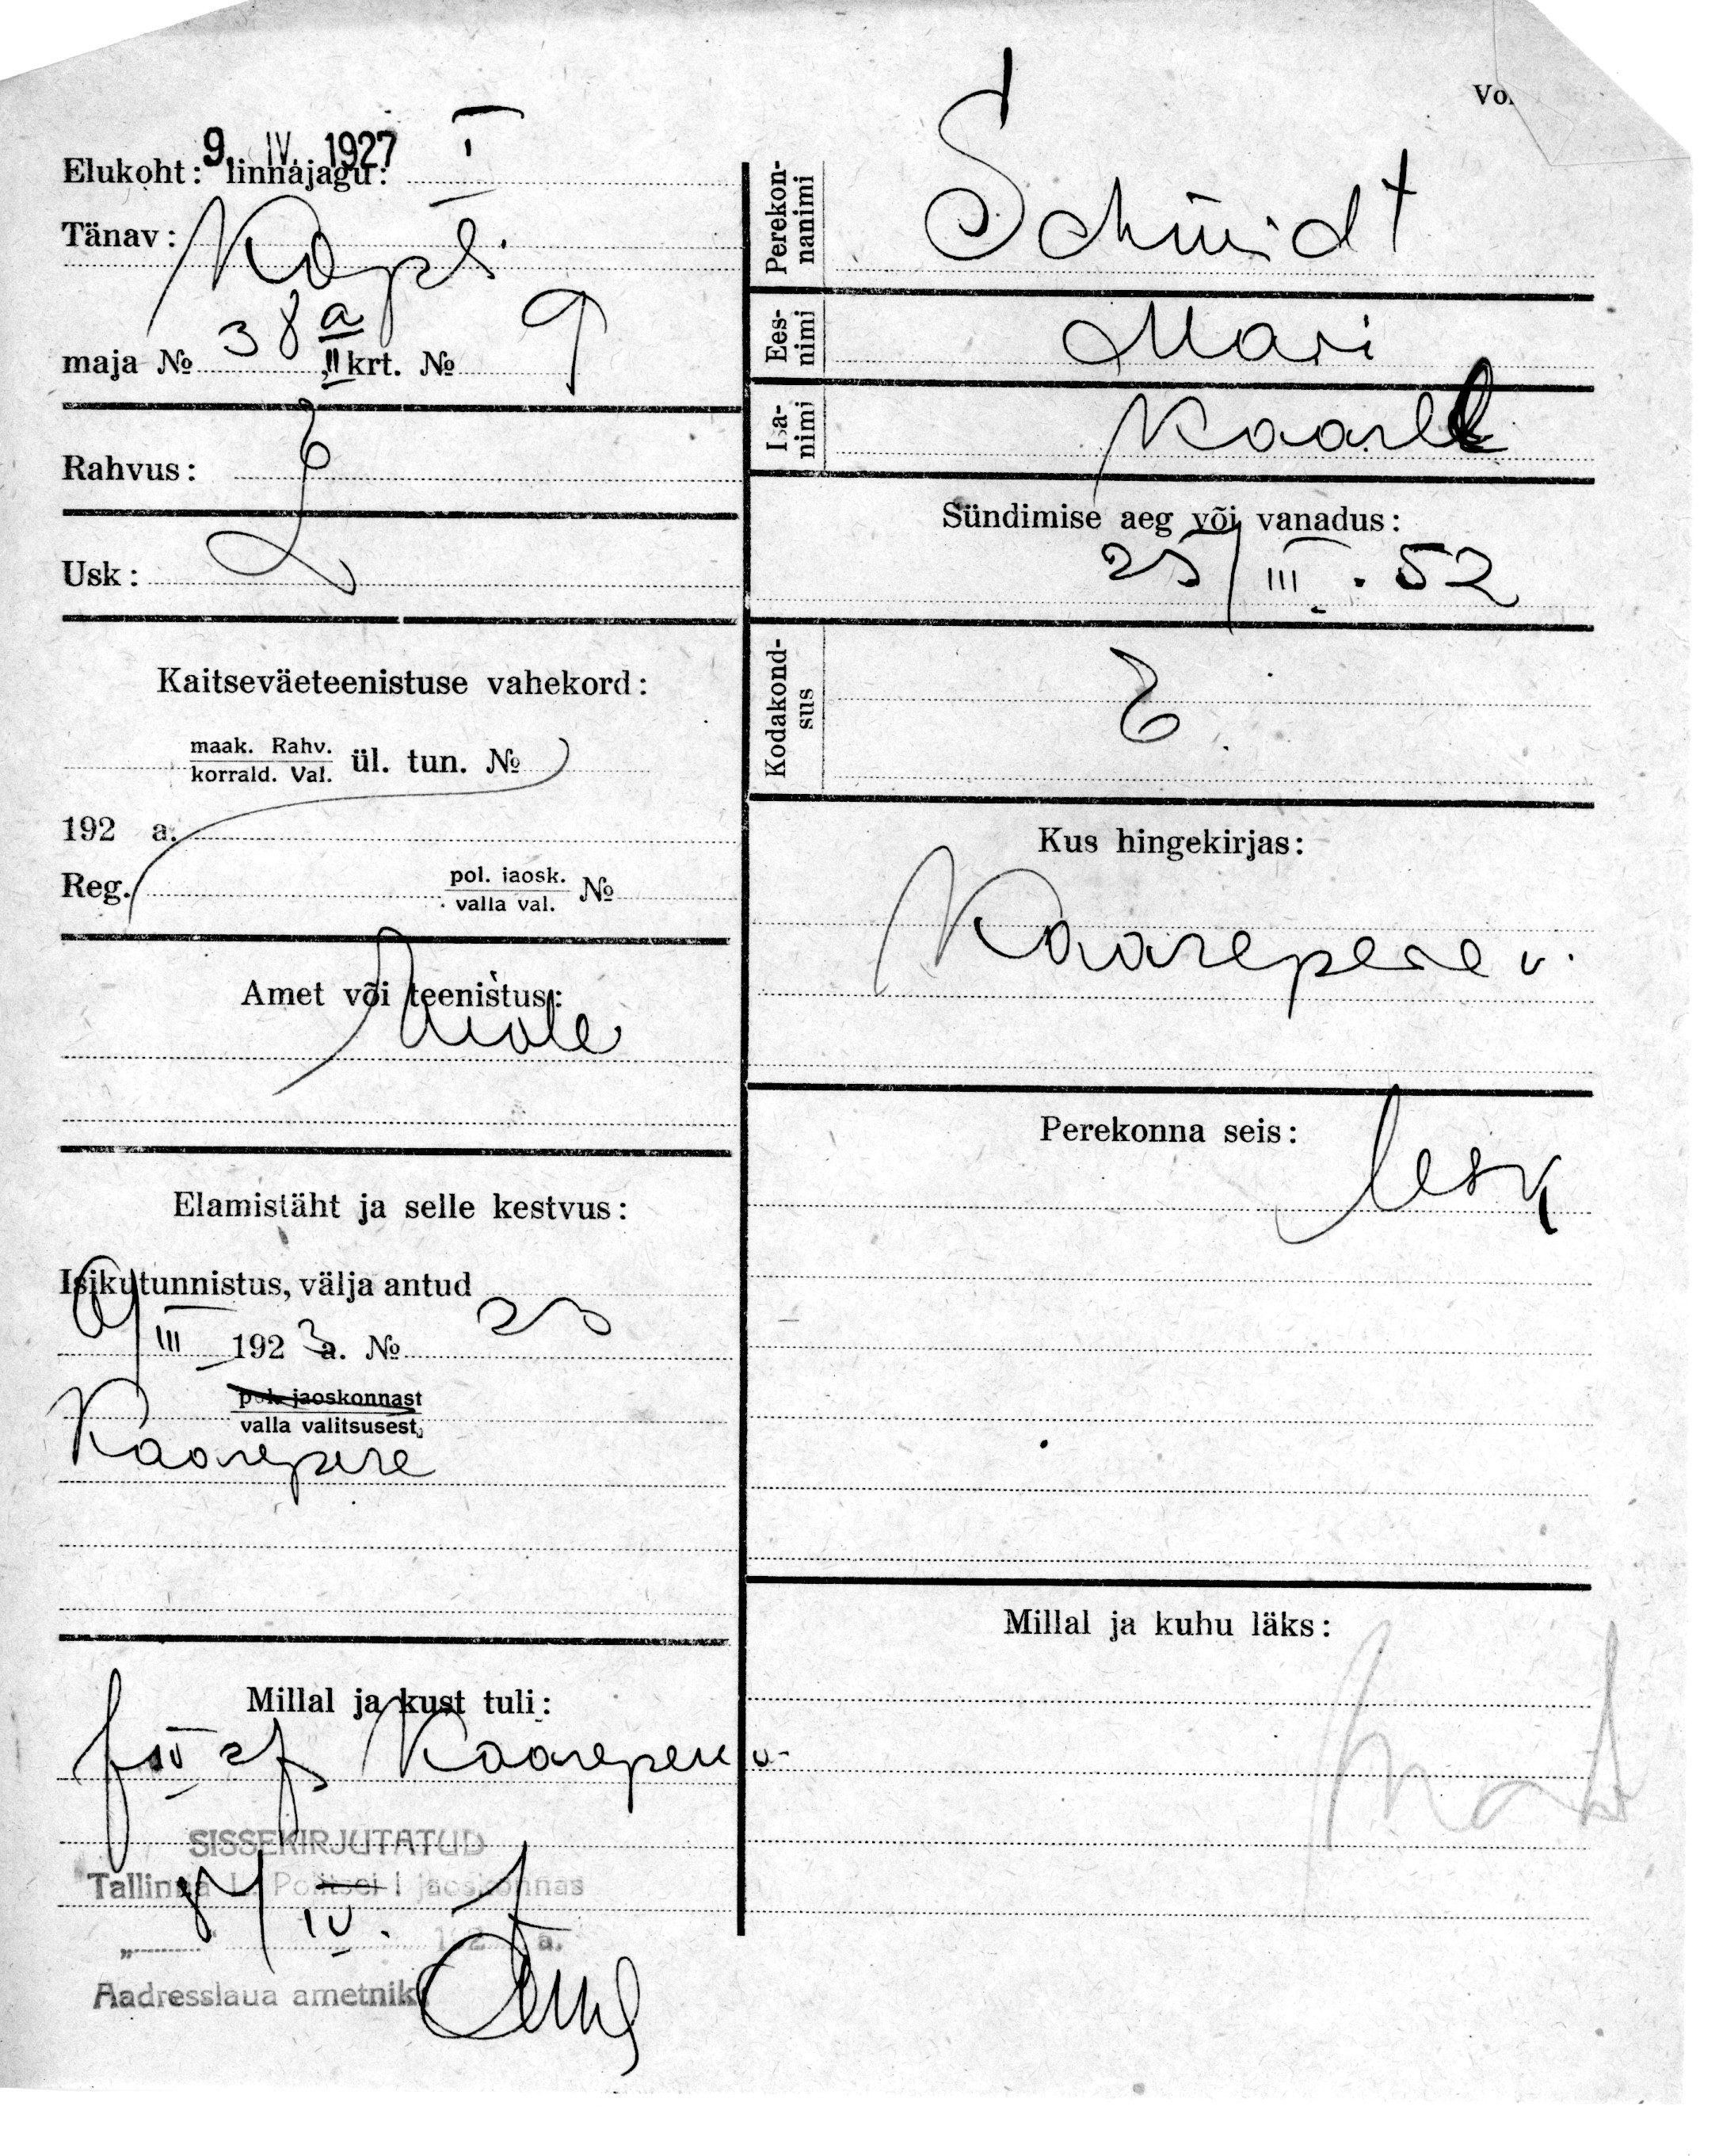 Vo
9. IV. 1927
Elukoht: linnajagu: I
Tänav: Kopli
maja № 38 a II krt. № 9
Rahvus: E
Usk: L
Kaitseväeteenistuse vahekord:
maak. Rahv.
korrald. Val. ül. tun. №
192 a.
Reg. pol. jaosk.
valla val. №
Amet või teenistus:
Elamistäht ja selle kestvus:
Isikutunnistus, välja antud
9/III 1923 a. № 25
pol. jaoskonnast
valla valitsusest,
Kaarepere
Millal ja kust tuli:
IV 27 Kaarepere v.
SISSEKIRJUTATUD
Tallinna L. Politsei I jaoskonnas
8/IV. 7
„ 192 a.
Aadresslaua ametnik
Perekonnanimi
Schmidt
Eesnimi
Mari
Isanimi
Kaarel
Sündimise aeg või vanadus:
25/III. 52
Kodakondsus
E
Kus hingekirjas:
Kaarepere v.
Perekonna seis: lesk
Millal ja kuhu läks: